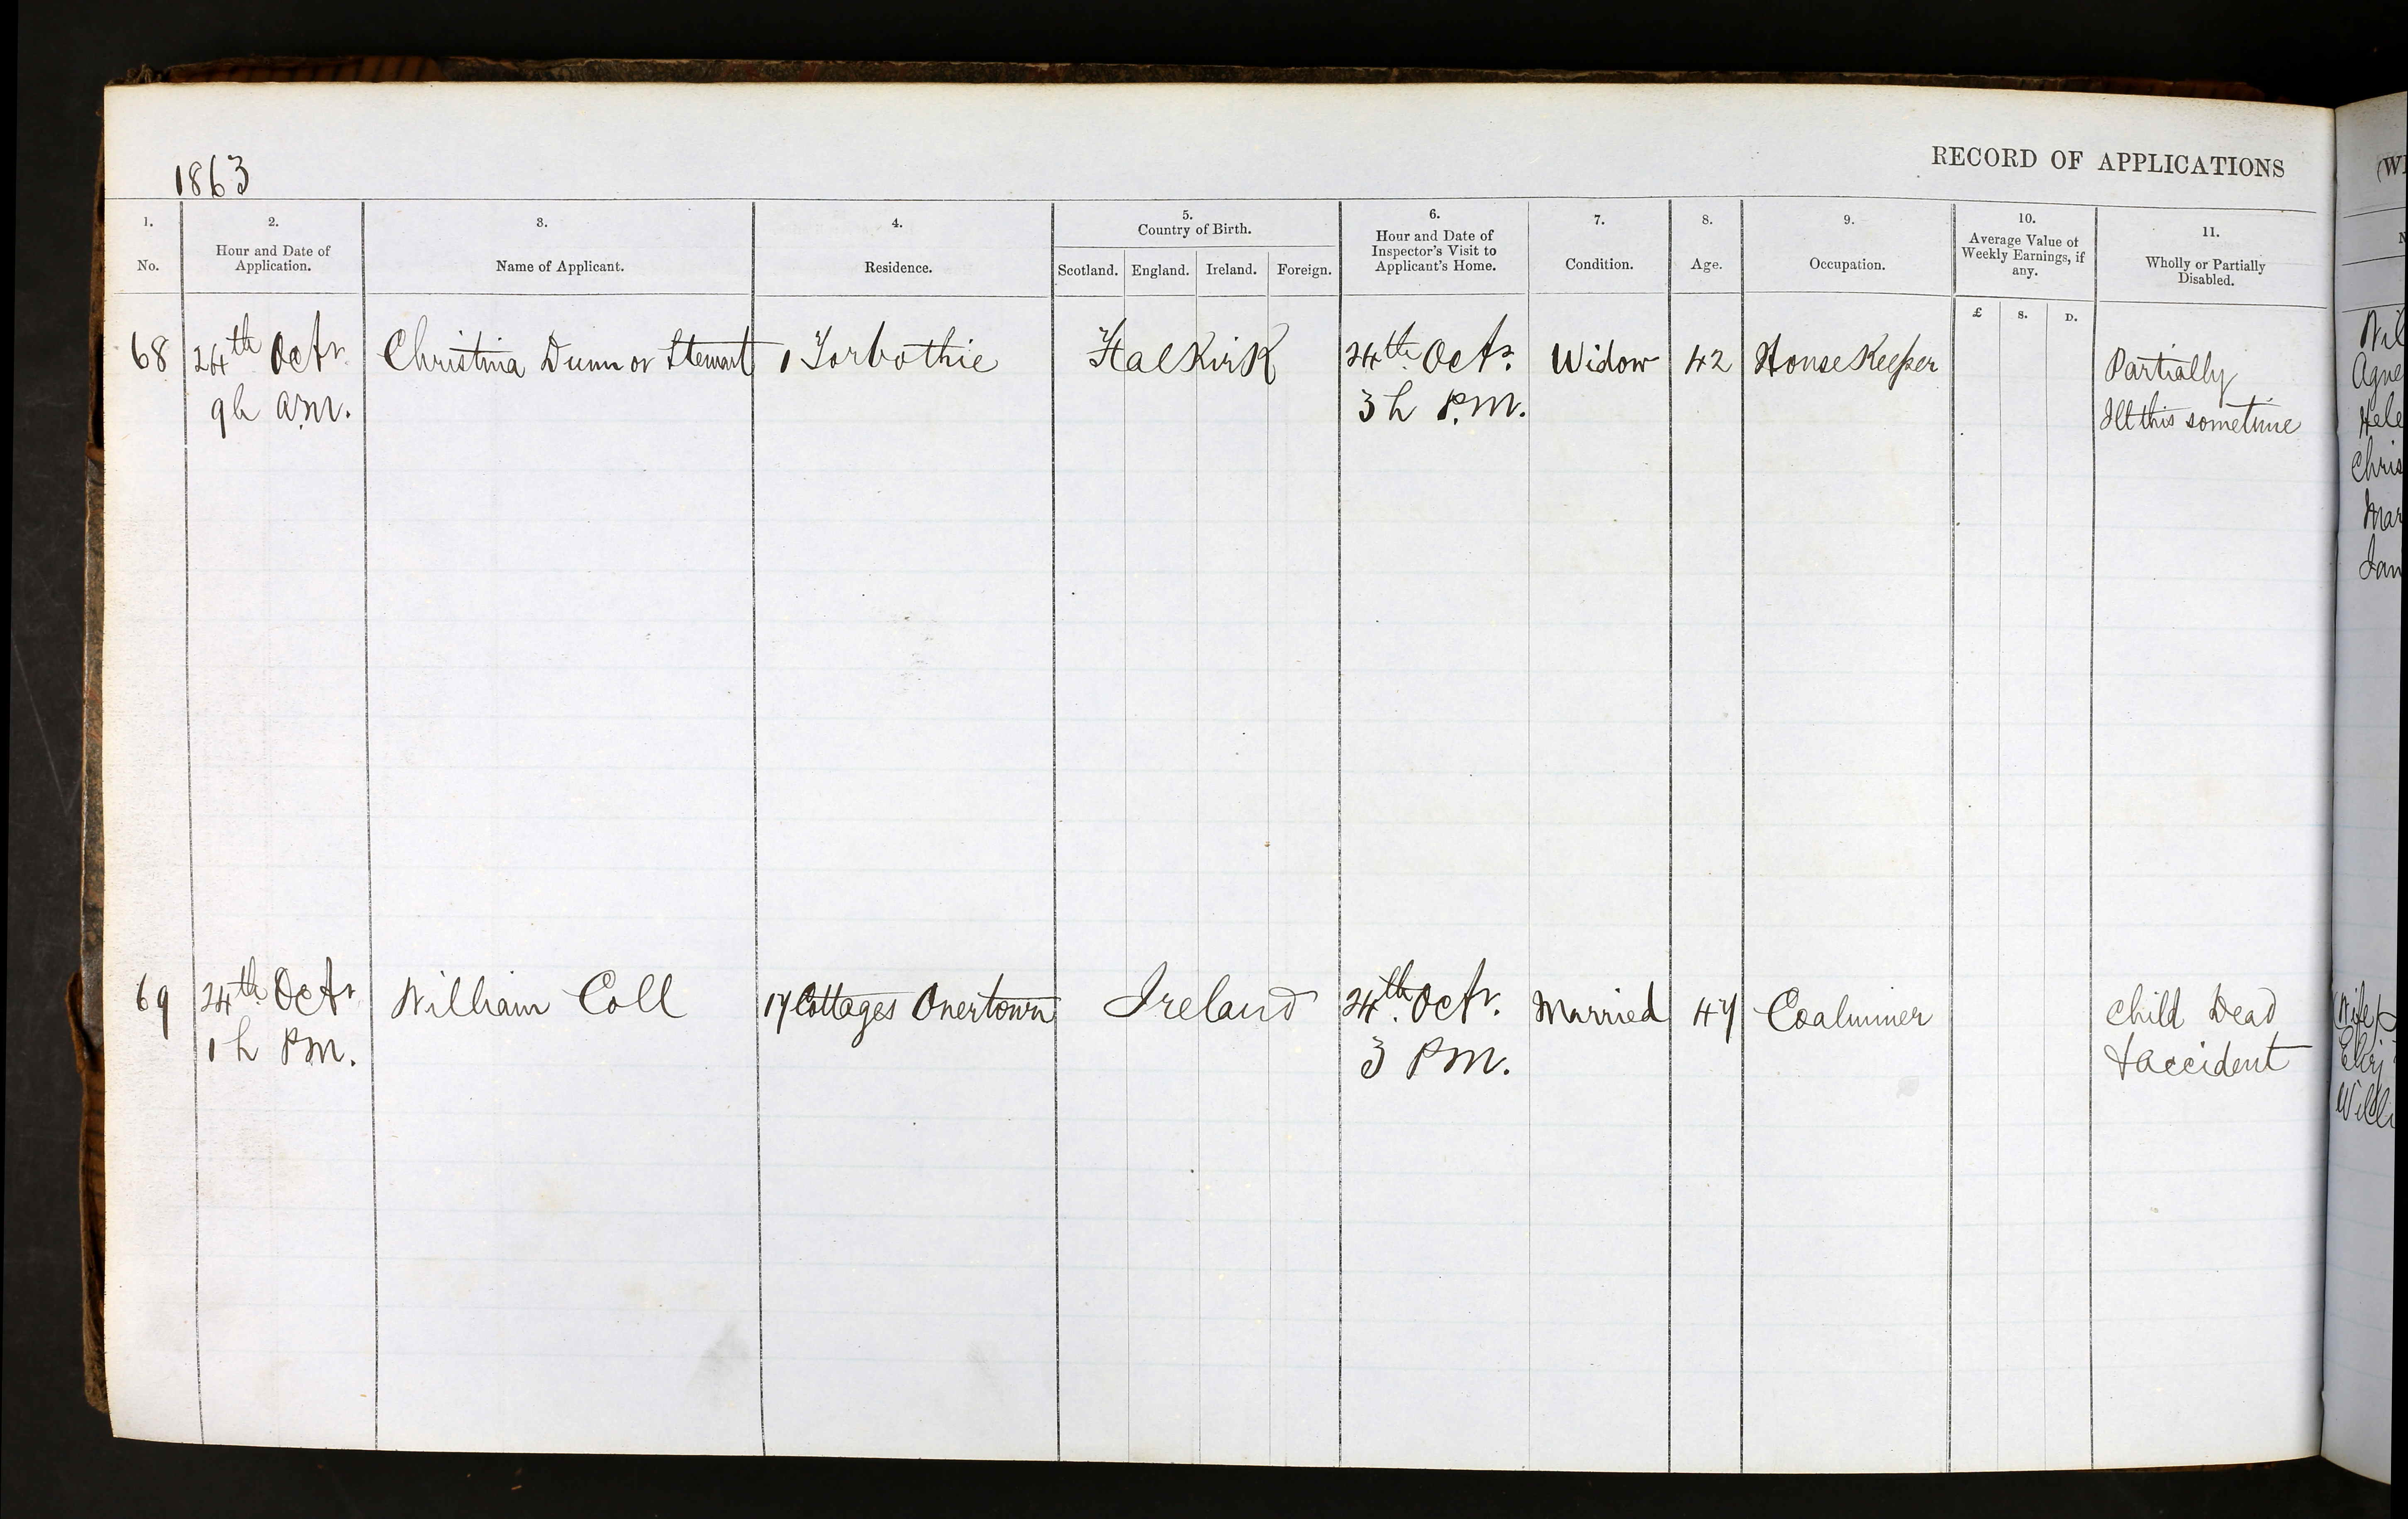 1863
RECORD OF APPLICATIONS
1. 2. 3. 4. 5. 6. 7. 8. 9. 10. 11.
No. Hour and Date of Application. Name of Applicant. Residence. Country of Birth. Scotland. England. Ireland. Foreign. Hour and Date of Inspector's Visit to Applicant's Home. Condition. Age. Occupation. Average Value of Weekly Earnings, if any. Wholly or Partially Disabled.
£ s. D.
68 24th Octr Christina Dunn or Stewart 1 Torbothie Falkirk 24th Octr. Widow 42 HouseKeeper Partially
9h a.m. 3h P.M. Ill this sometime
69 24th Octr William Coll 17 Cottages Overtown Ireland 24th Octr. Married 47 Coalminer Child Dead
1h PM. 3 PM. & accident